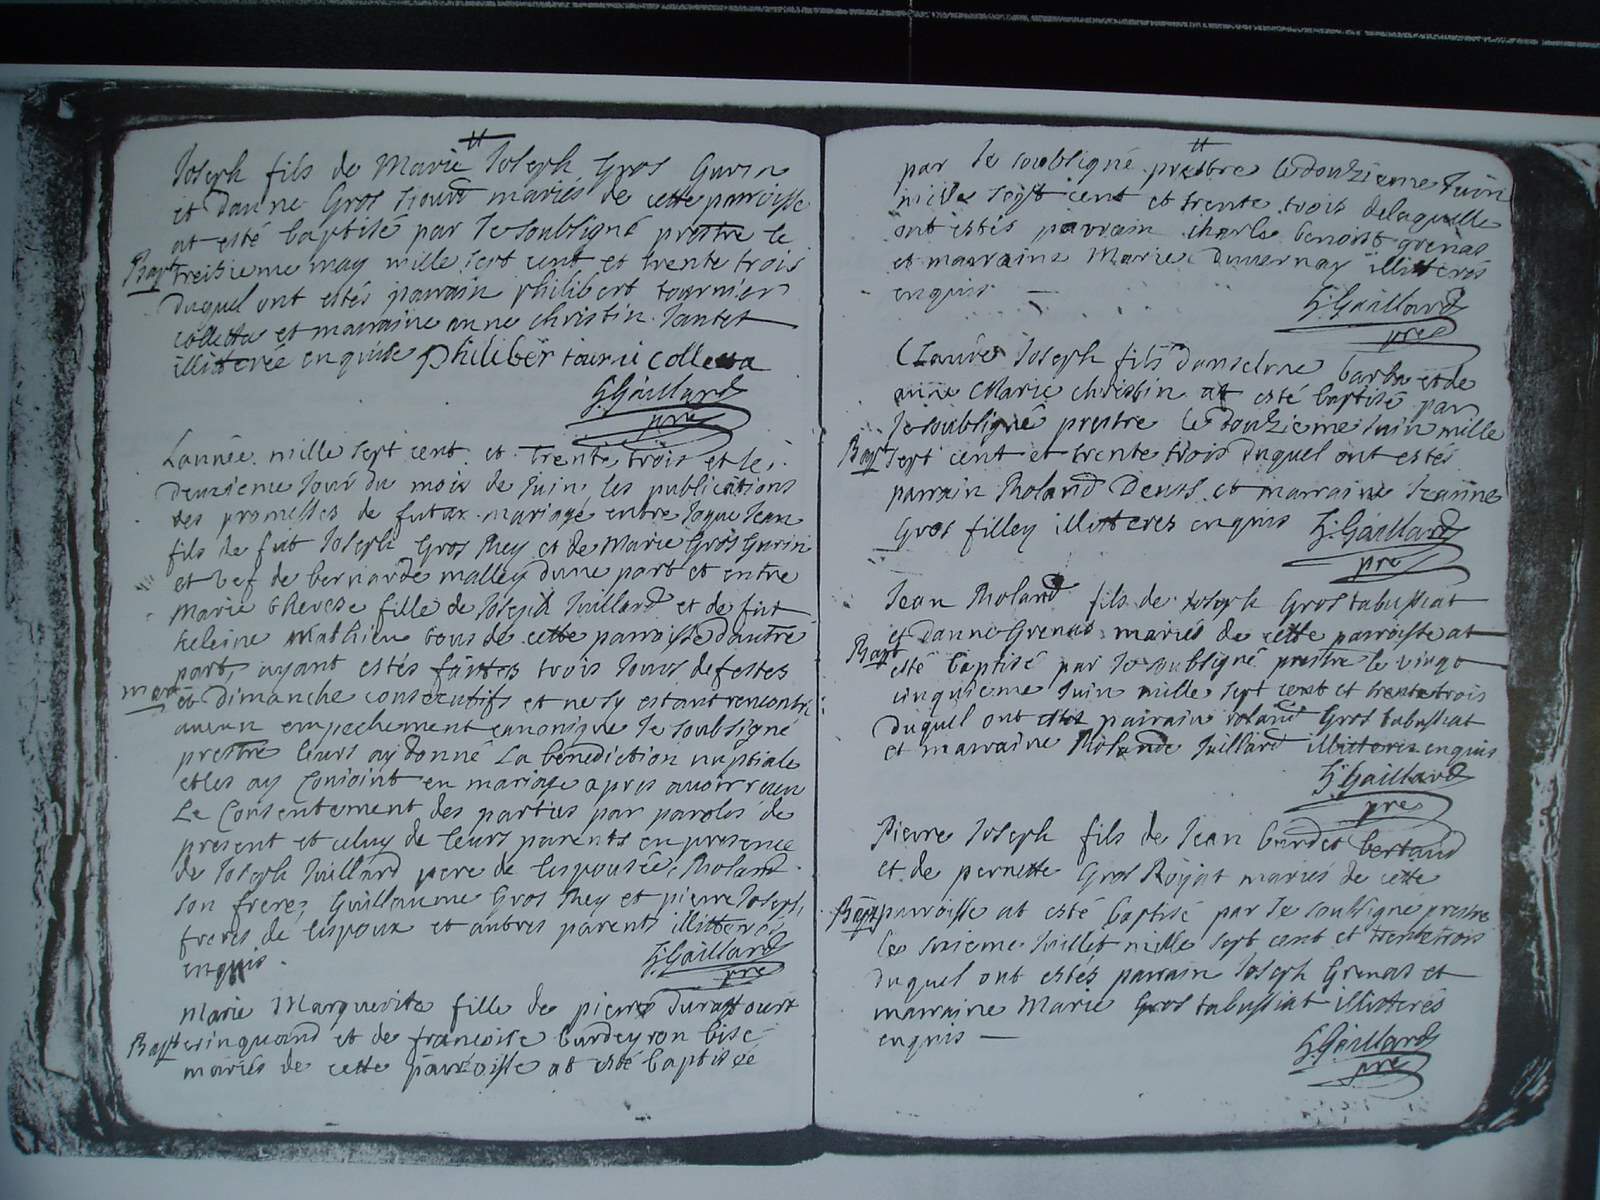 Joseph fils de Marie Joseph Gros Gurin
et danne Gros mariés de cette parroisse
at esté baptisé par Je soubsigné prestre le
Bapt treisieme may mille sept cent et trente trois
duquel ont estés parrain philibert tournier
colletta et marraine anne christin Jantet
illitterée enquise philiber tourni colletta
G: Gaillard
pre
Lannée mille sept cent et trente trois et le
deuzieme Jour du mois de Juin les publications
des promesses de futur mariage entre Jaque Jean
fils de fut Joseph Gros Rey et de Marie Gros Gurin
et vef de bernarde malley dune part et entre
Marie therese fille de Joseph Juillard et de fut
heleine Mathieu tous de cette parroisse dautre
part, ayant estés faittes trois Jours de festes
mar et Dimanche consecutifs et ne sy estant rencontré
aucun empechement canonique Je soubsigné
prestre leurs ay donné La bénédiction nuptiale
et les ay Conioint en mariage apres avoir receu
Le Consentement des parties par paroles de
present et celuy de leurs parents en presence
de Joseph Juillard pere de lespousée, Roland
son frere, Guillaume Gros Rey et pierre Joseph
freres de lespoux et autres parents illitteres
enquis.
G: Gaillard
pre
Marie Marguerite fille de pierre
Bapt et de francoise burdeyron bise
mariés de cette parroisse at esté baptisée
par Je soubsigné prestre le douzieme Juin
mille sept cent et trente trois de laquelle
ont estés parrain charle benoist grenas
et marraine Marie duvernay illitterés
enquis —
G: Gaillard
pre
Claude Joseph fils danselme barba et de
anne Marie christin at esté baptisé par
Je soubsigné prestre le douzieme Juin mille
Bapt sept cent et trente trois duquel ont estés
parrain Roland et marraine Jeanne
Gros filley illitteres enquis G: Gaillard
pre
Jean Roland fils de Joseph Gros tabussiat
et danne Grenas mariés de cette parroisse at
Bapt esté baptisé par Je soubsigné prestre le vingt
cinquieme Juin mille sept cent et trente trois
duquel ont estés parrain roland Gros tabussiat
et marraine Rolande Juillard illitteres enquis
G: Gaillard
pre
Pierre Joseph fils de Jean burdet bertand
et de pernette Gros Rojat mariés de cette
Bapt parroisse at esté baptisé par Je soubsigne prestre
le Juillet mille sept cent et trente trois
duquel ont estés parrain Joseph Grenas et
marraine Marie Gros tabussiat illitterés
enquis —
G: Gaillard
pre